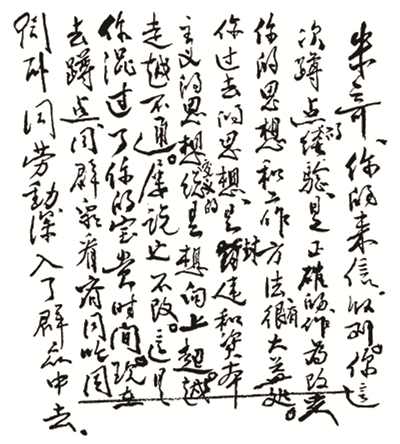 你的来信收到。你这
次蹲点的经验是正确的作为改变
你的思想和工作方法很有大益处。
你过去的思想是封建和资本
主义的思想总是想向上超越。
走越不通。屡说也不改。这是
你混过了你的宝贵时间。现在
去蹲点同群众看齐同吃同
卧同劳動深入了群众中去、